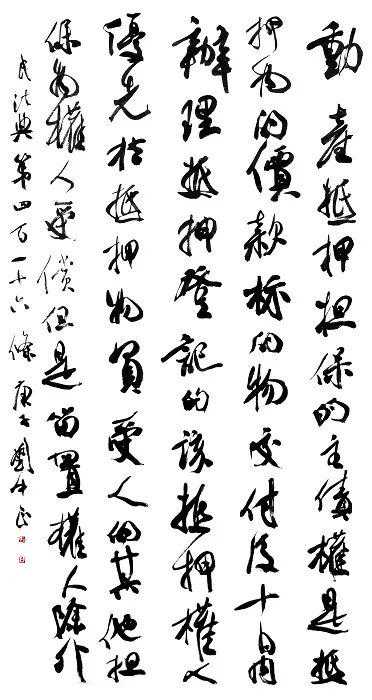 動產抵押担保的主債權是抵
押物的價款标的物交付后十日内
辦理抵押登記的該抵押權人
優先於抵押物買受人的其他担
保物權人受償但是留置權人除外
民法典第四百一十六條 庚子劉